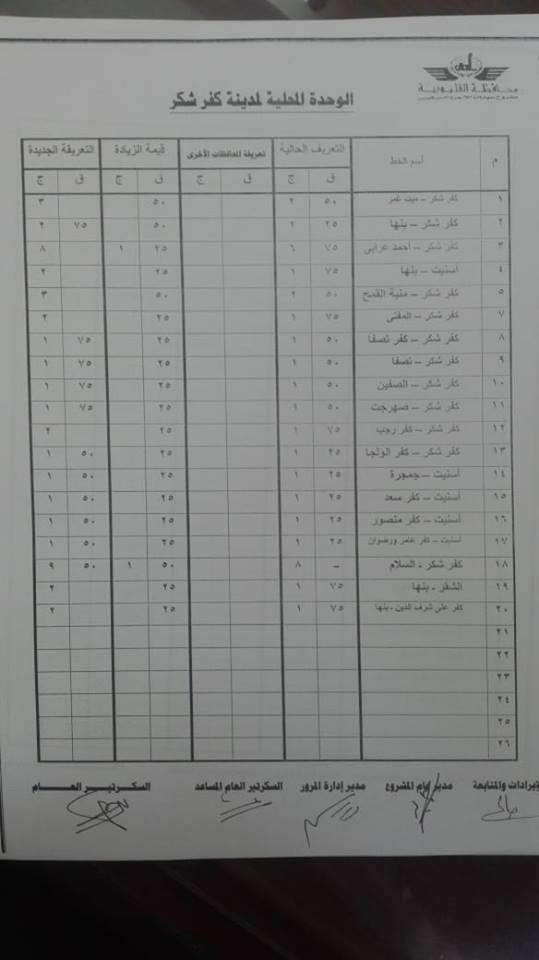 محافظة القليوبية
الوحدة المحلية لمدينة كفر شكر
م أسم الخط التعريف الحالية تعريفة المحافظات الأخرى قيمة الزيادة التعريفة الجديدة
ق ج ق ج ق ج ق ج
١ كفر شكر – ميت غمر ٥٠ ٢ ٥٠ ٣
٢ كفر شكر – بنها ٢٥ ٢ ٥٠ ٧٥ ٢
٣ كفر شكر – احمد عرابى ٧٥ ٦ ٢٥ ١ ٨
٤ اسنيت – بنها ٧٥ ١ ٢٥ ٢
٥ كفر شكر – منية القمح ٥٠ ٢ ٥٠ ٣
٧ كفر شكر – المفتى ٧٥ ١ ٢٥ ٢
٨ كفر شكر – كفر تصفا ٥٠ ١ ٢٥ ٧٥ ١
٩ كفر شكر – تصفا ٥٠ ١ ٢٥ ٧٥ ١
١٠ كفر شكر – الصفين ٥٠ ١ ٢٥ ٧٥ ١
١١ كفر شكر – صهرجت ٥٠ ١ ٢٥ ٧٥ ١
١٢ كفر شكر – كفر رجب ٧٥ ١ ٢٥ ٢
١٣ كفر شكر – كفر الولجا ٢٥ ١ ٢٥ ٥٠ ١
١٤ أسنيت – جمجرة ٢٥ ١ ٢٥ ٥٠ ١
١٥ أسنيت – كفر سعد ٢٥ ١ ٢٥ ٥٠ ١
١٦ أسنيت – كفر منصور ٢٥ ١ ٢٥ ٥٠ ١
١٧ أسنيت – كفر عامر ورضوان ٢٥ ١ ٢٥ ٥٠ ١
١٨ كفر شكر - السلام – ٨ ٥٠ ١ ٥٠ ٩
١٩ الشقر - بنها ٧٥ ١ ٢٥ ٢
٢٠ كفر على شرف الدين - بنها ٧٥ ١ ٢٥ ٢
٢١
٢٢
٢٣
٢٤
٢٥
٢٦
يرادات والمتابعة مدير عام المشروع مدير إدارة المرور السكرتير العام المساعد السكرتير العام